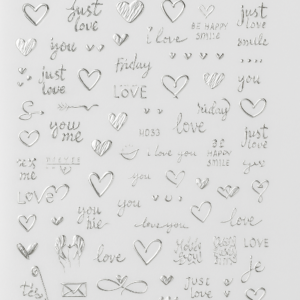 just
love
BE HAPPY
SMILE
just
love
smile
you
i love
just
love
Friday
LOVE
you
you
me
H033
Friday
love
just
love
BE
HAPPY
SMILE
i love you
me
you
you
LOVE
you
me
love you
love
love
LOVE
je
JUST
LOVE